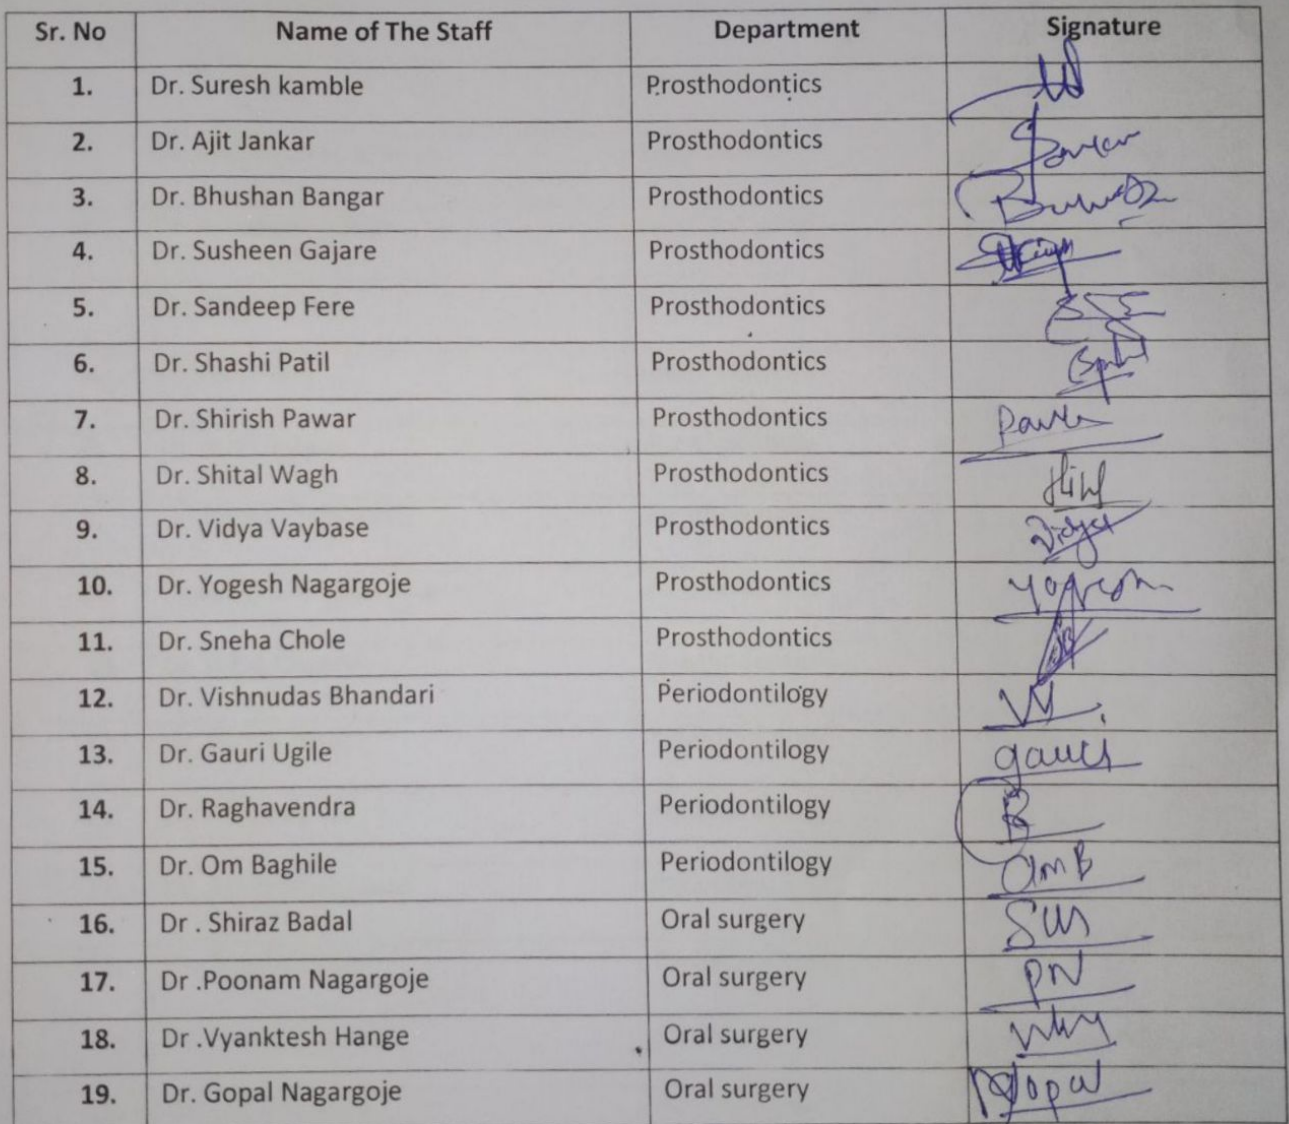 Sr. No Name of The Staff Department Signature
1. Dr. Suresh kamble Prosthodontics
2. Dr. Ajit Jankar Prosthodontics
3. Dr. Bhushan Bangar Prosthodontics
4. Dr. Susheen Gajare Prosthodontics
5. Dr. Sandeep Fere Prosthodontics
6. Dr. Shashi Patil Prosthodontics
7. Dr. Shirish Pawar Prosthodontics
8. Dr. Shital Wagh Prosthodontics
9. Dr. Vidya Vaybase Prosthodontics Vidya
10. Dr. Yogesh Nagargoje Prosthodontics
11. Dr. Sneha Chole Prosthodontics
12. Dr. Vishnudas Bhandari Periodontilogy
13. Dr. Gauri Ugile Periodontilogy gauri
14. Dr. Raghavendra Periodontilogy R
15. Dr. Om Baghile Periodontilogy Om B
16. Dr . Shiraz Badal Oral surgery
17. Dr .Poonam Nagargoje Oral surgery PN
18. Dr .Vyanktesh Hange Oral surgery
19. Dr. Gopal Nagargoje Oral surgery